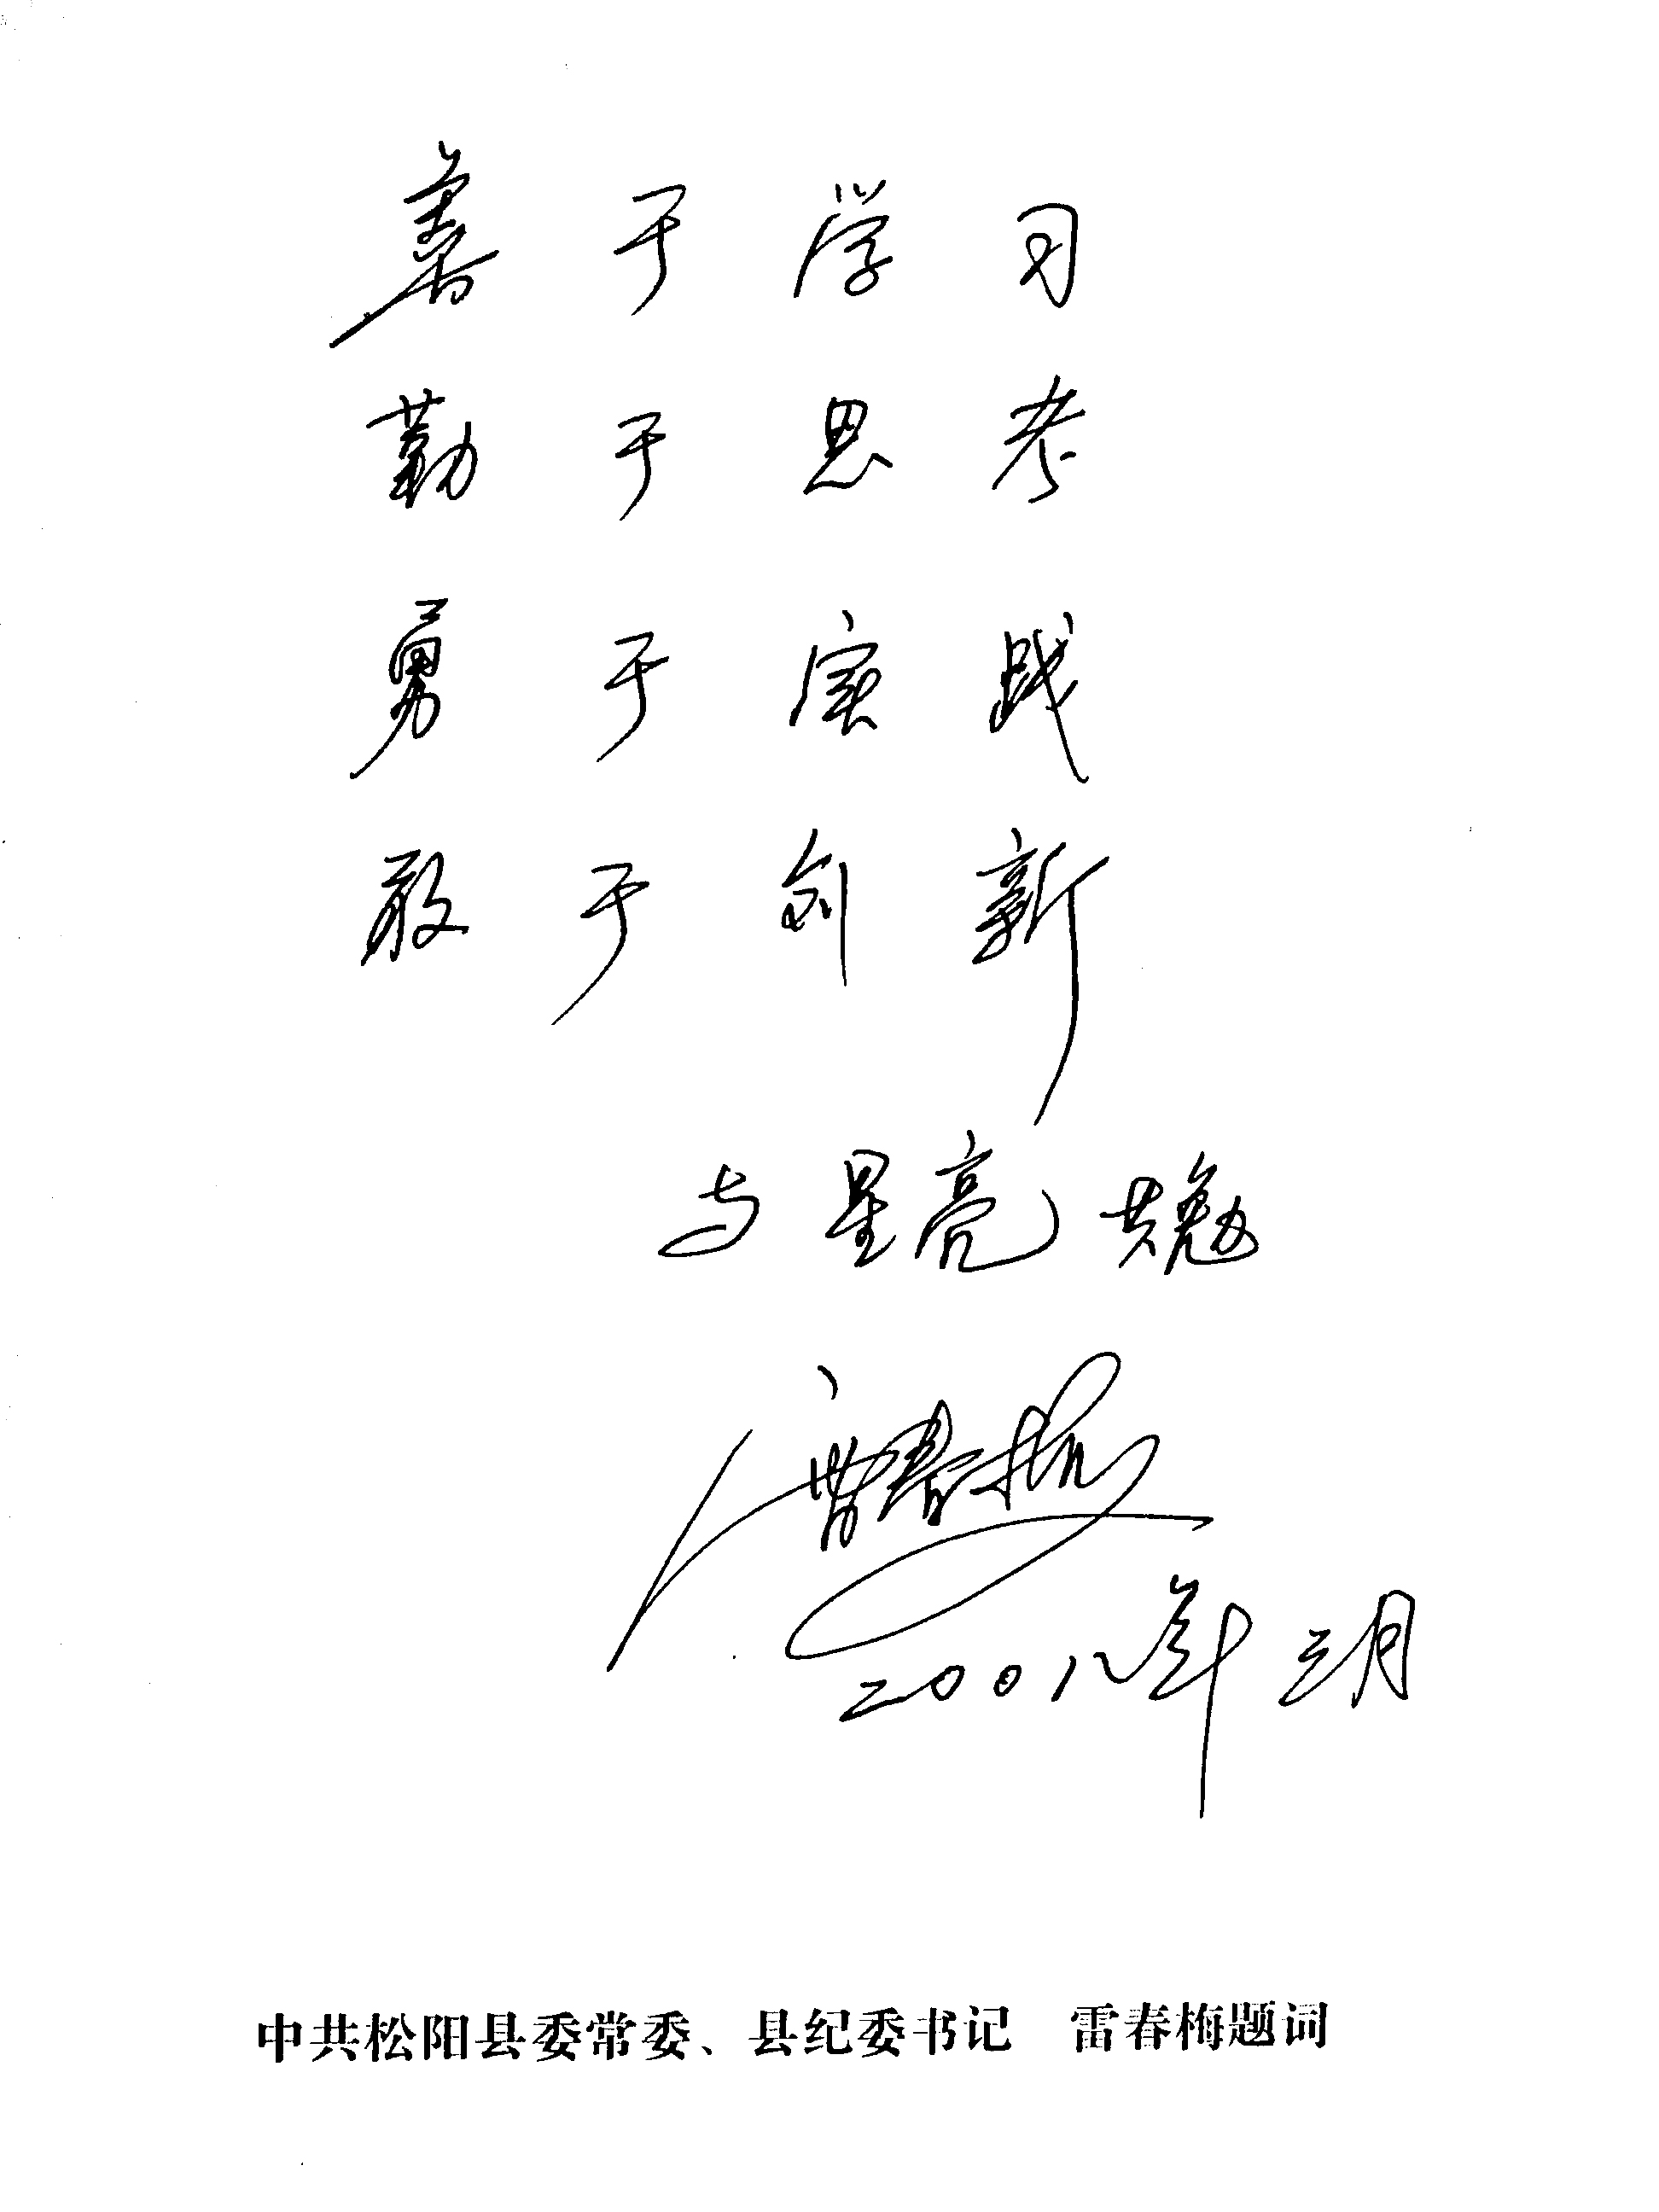 善于学习
勤于思考
勇于实践
敢于创新
与星亮共勉
雷春梅
二〇〇八年三月
中共松阳县委常委、县纪委书记　雷春梅题词